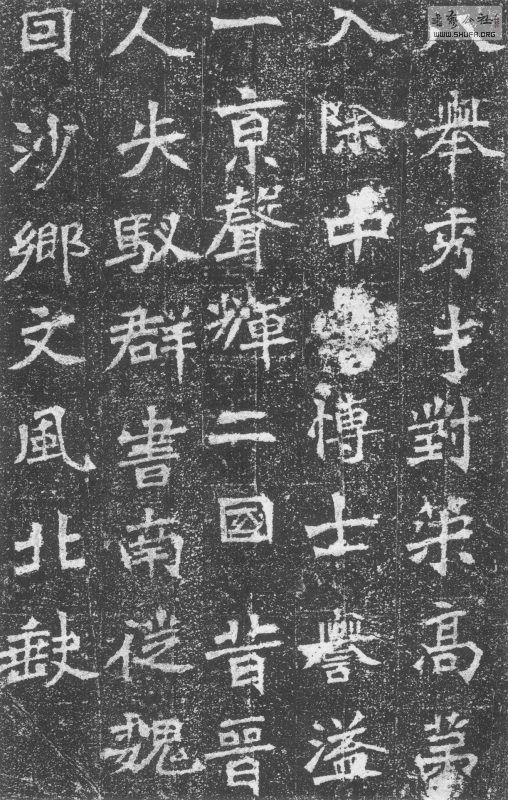 舉秀才對策高第
入除中書博士譽溢
一京聲輝二國昔晉
人失馭群書南徙魏
囙沙鄉文風北缺
WWW.SHUFA.ORG